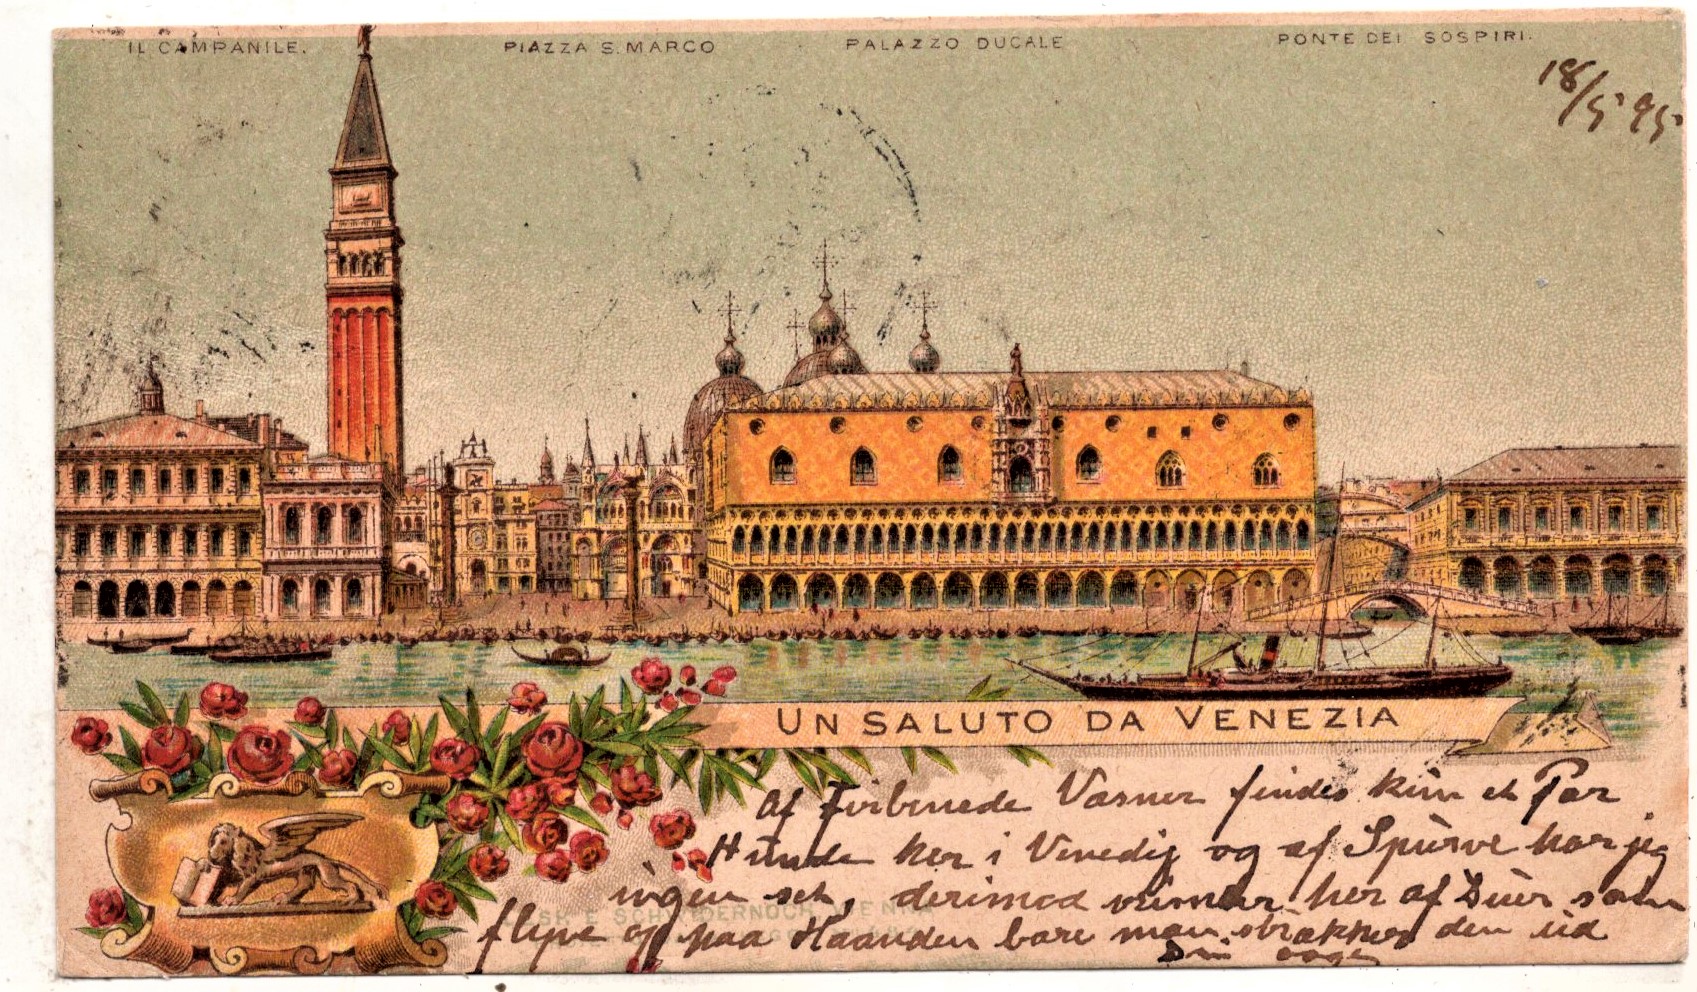 IL CAMPANILE.
PIAZZA S. MARCO
PALAZZO DUCALE
PONTE DEI SOSPIRI.
18/5 95
UN SALUTO DA VENEZIA
Af Firbenede Væsner findes kun et Par
Hunde her i Venedig og af Spurve har jeg
ingen set, derimod vrimler her af Duer som
flyve op paa Haanden bare man strækker den ud
Din
SCHWIDERNOCH VIENNA